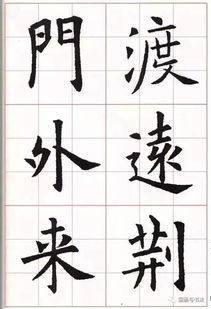 渡遠荆
門外来